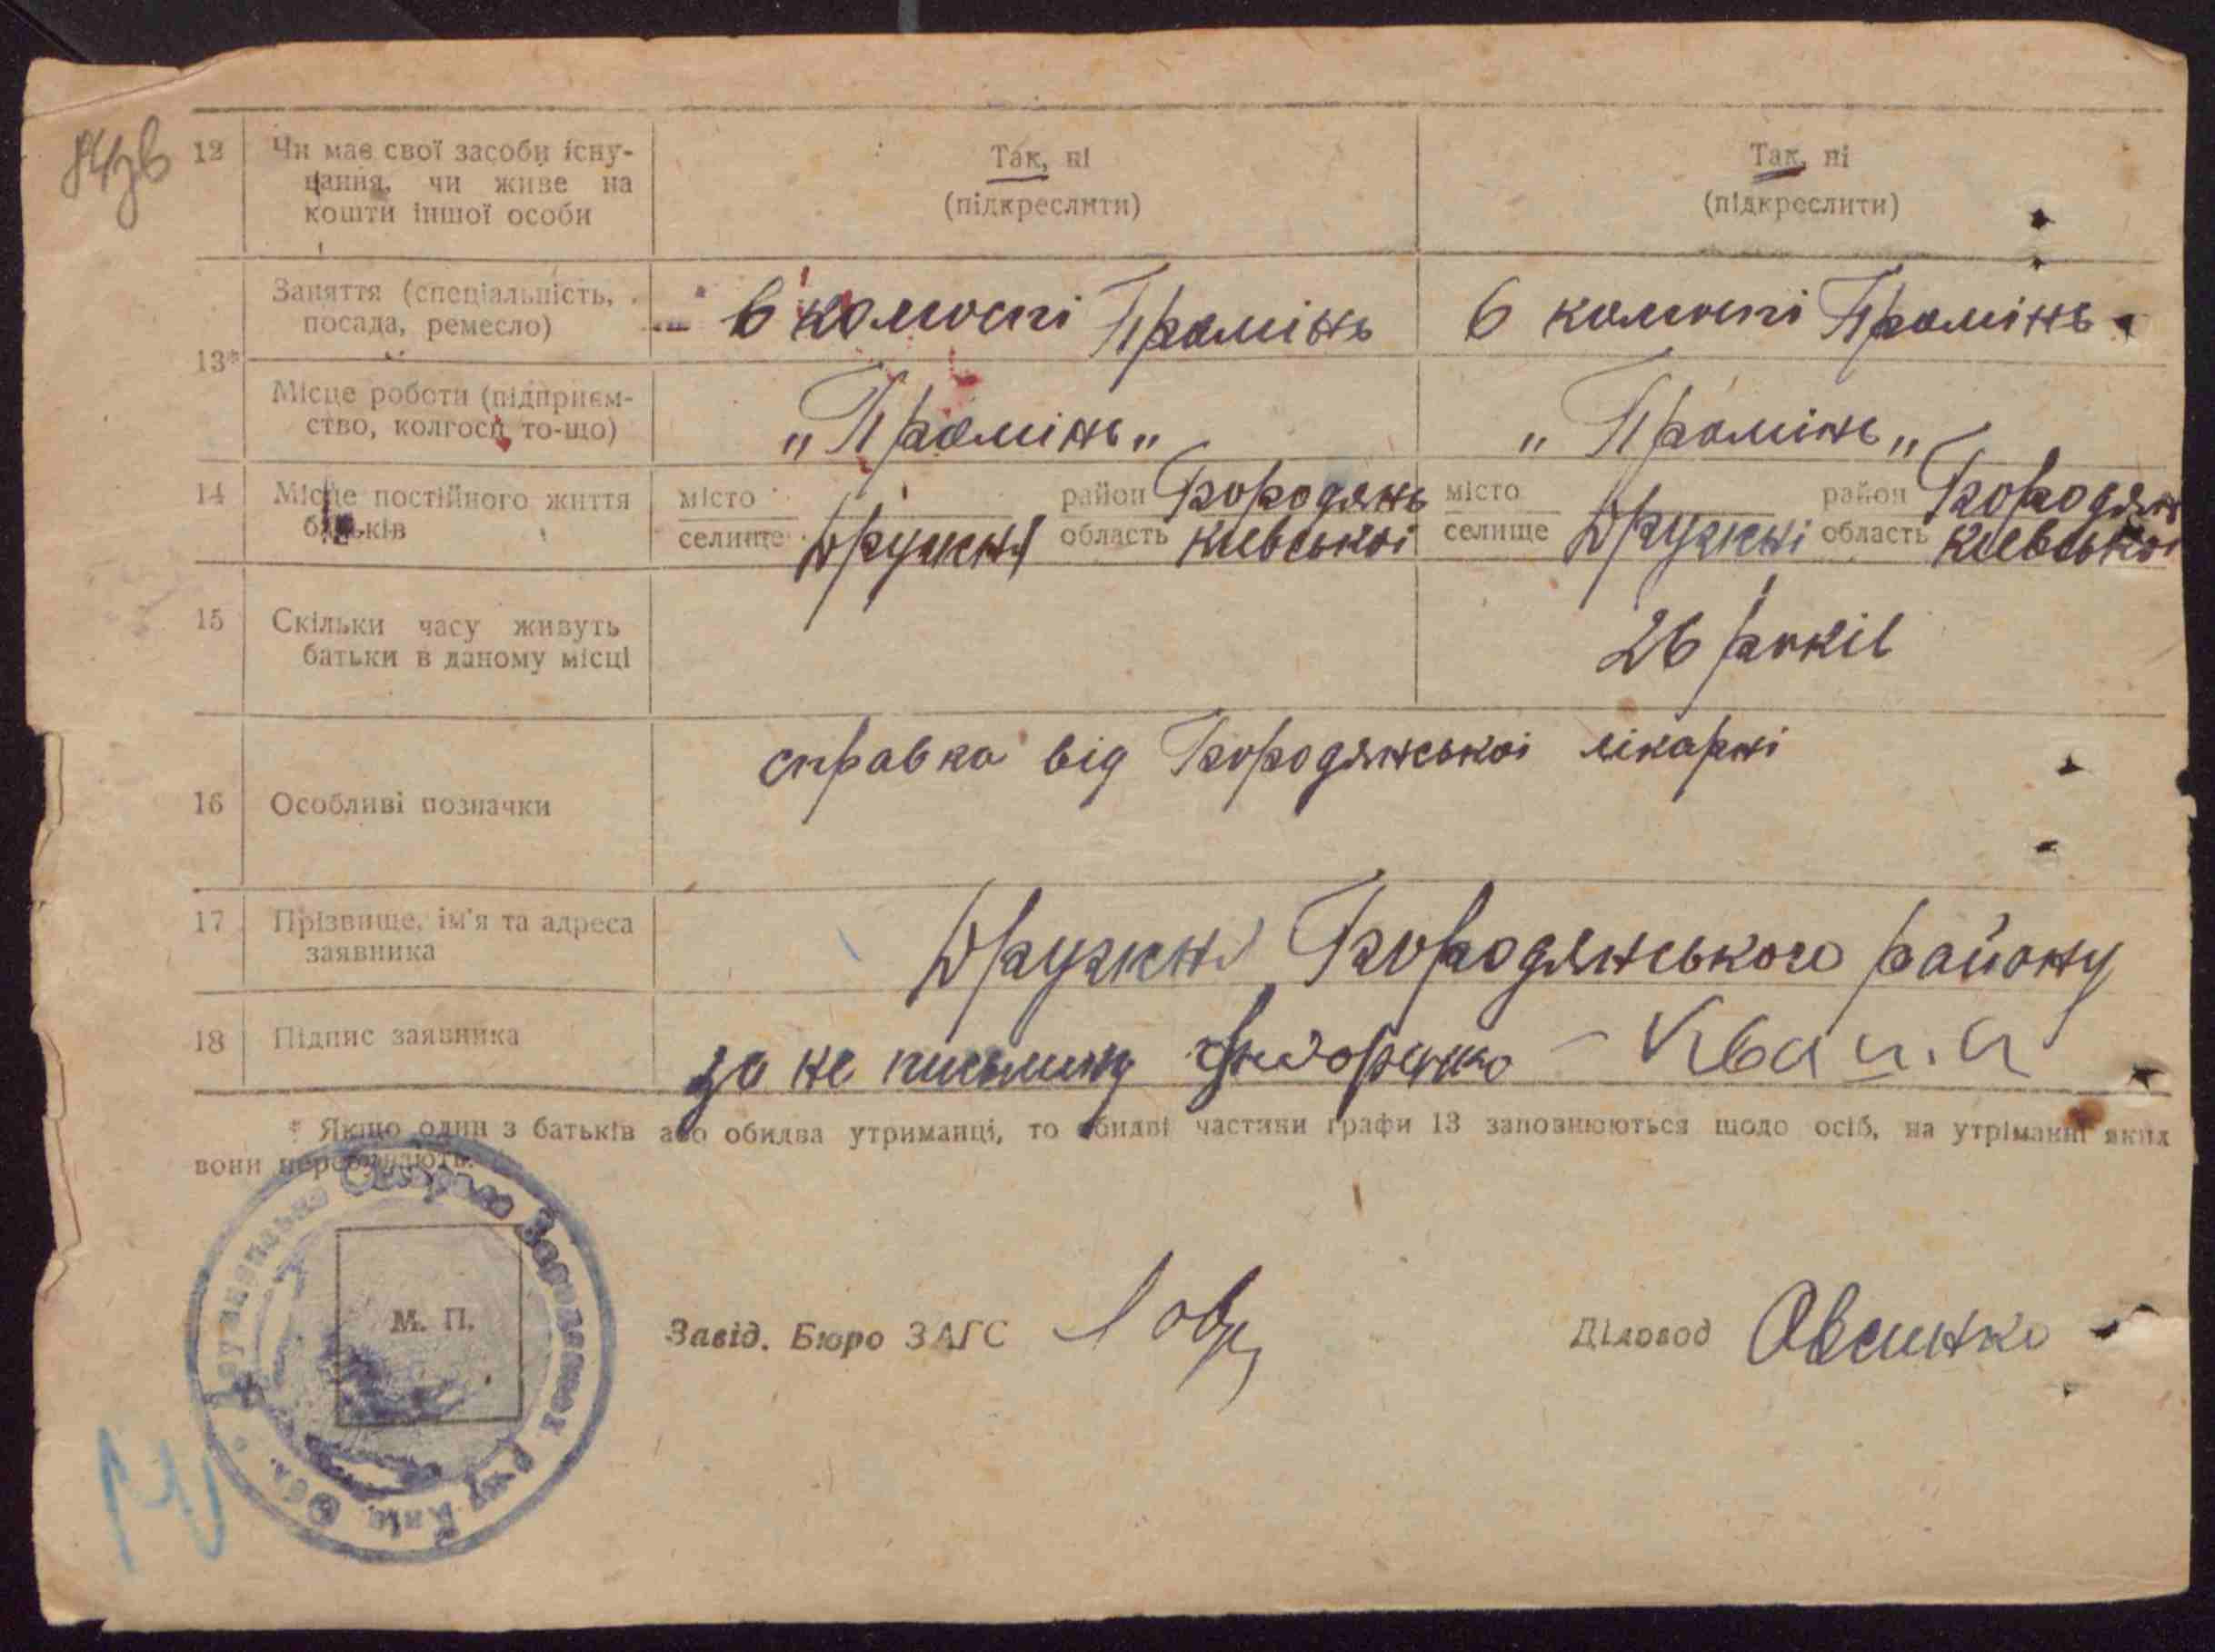 84зв
12 Чи має свої засоби існу-
вання, чи живе на
кошти іншої особи
Так, ні
(підкреслити)
Так, ні
(підкреслити)
13*
Заняття (спеціальність,
посада, ремесло)
в колгоспі Промінь
в колгоспі Промінь
Місце роботи (підприєм-
ство, колгосп, то-що)
„Промінь„
„Промінь„
14 Місце постійного життя
батьків
місто
селище Дружня
район Бородянь
область Київської
місто
селище Дружні
район Бородян
область Київської
15 Скільки часу живуть
батьки в даному місці
26 років
16 Особливі позначки
справка від Бородянської лікарні
17 Прізвище, ім'я та адреса
заявника
Дружня Бородянського району
18 Підпис заявника
за не письмину
* Якщо один з батьків або обидва утриманці, то обидві частини графи 13 заповнюються щодо осіб, на утріманні яких
вони перебувають.
М. П.
Київ. Обл.
Завід. Бюро ЗАГС
Діловод